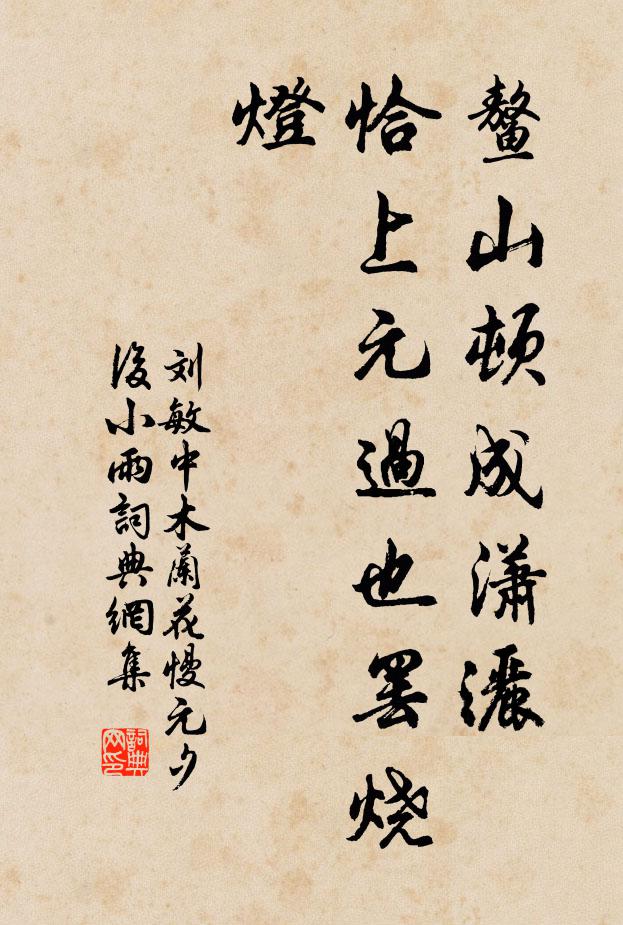 鰲山頓成瀟灑
恰上元過也罢烧
燈
刘敏中木蘭花慢元夕
後小雨詞典網集
詞典
网印